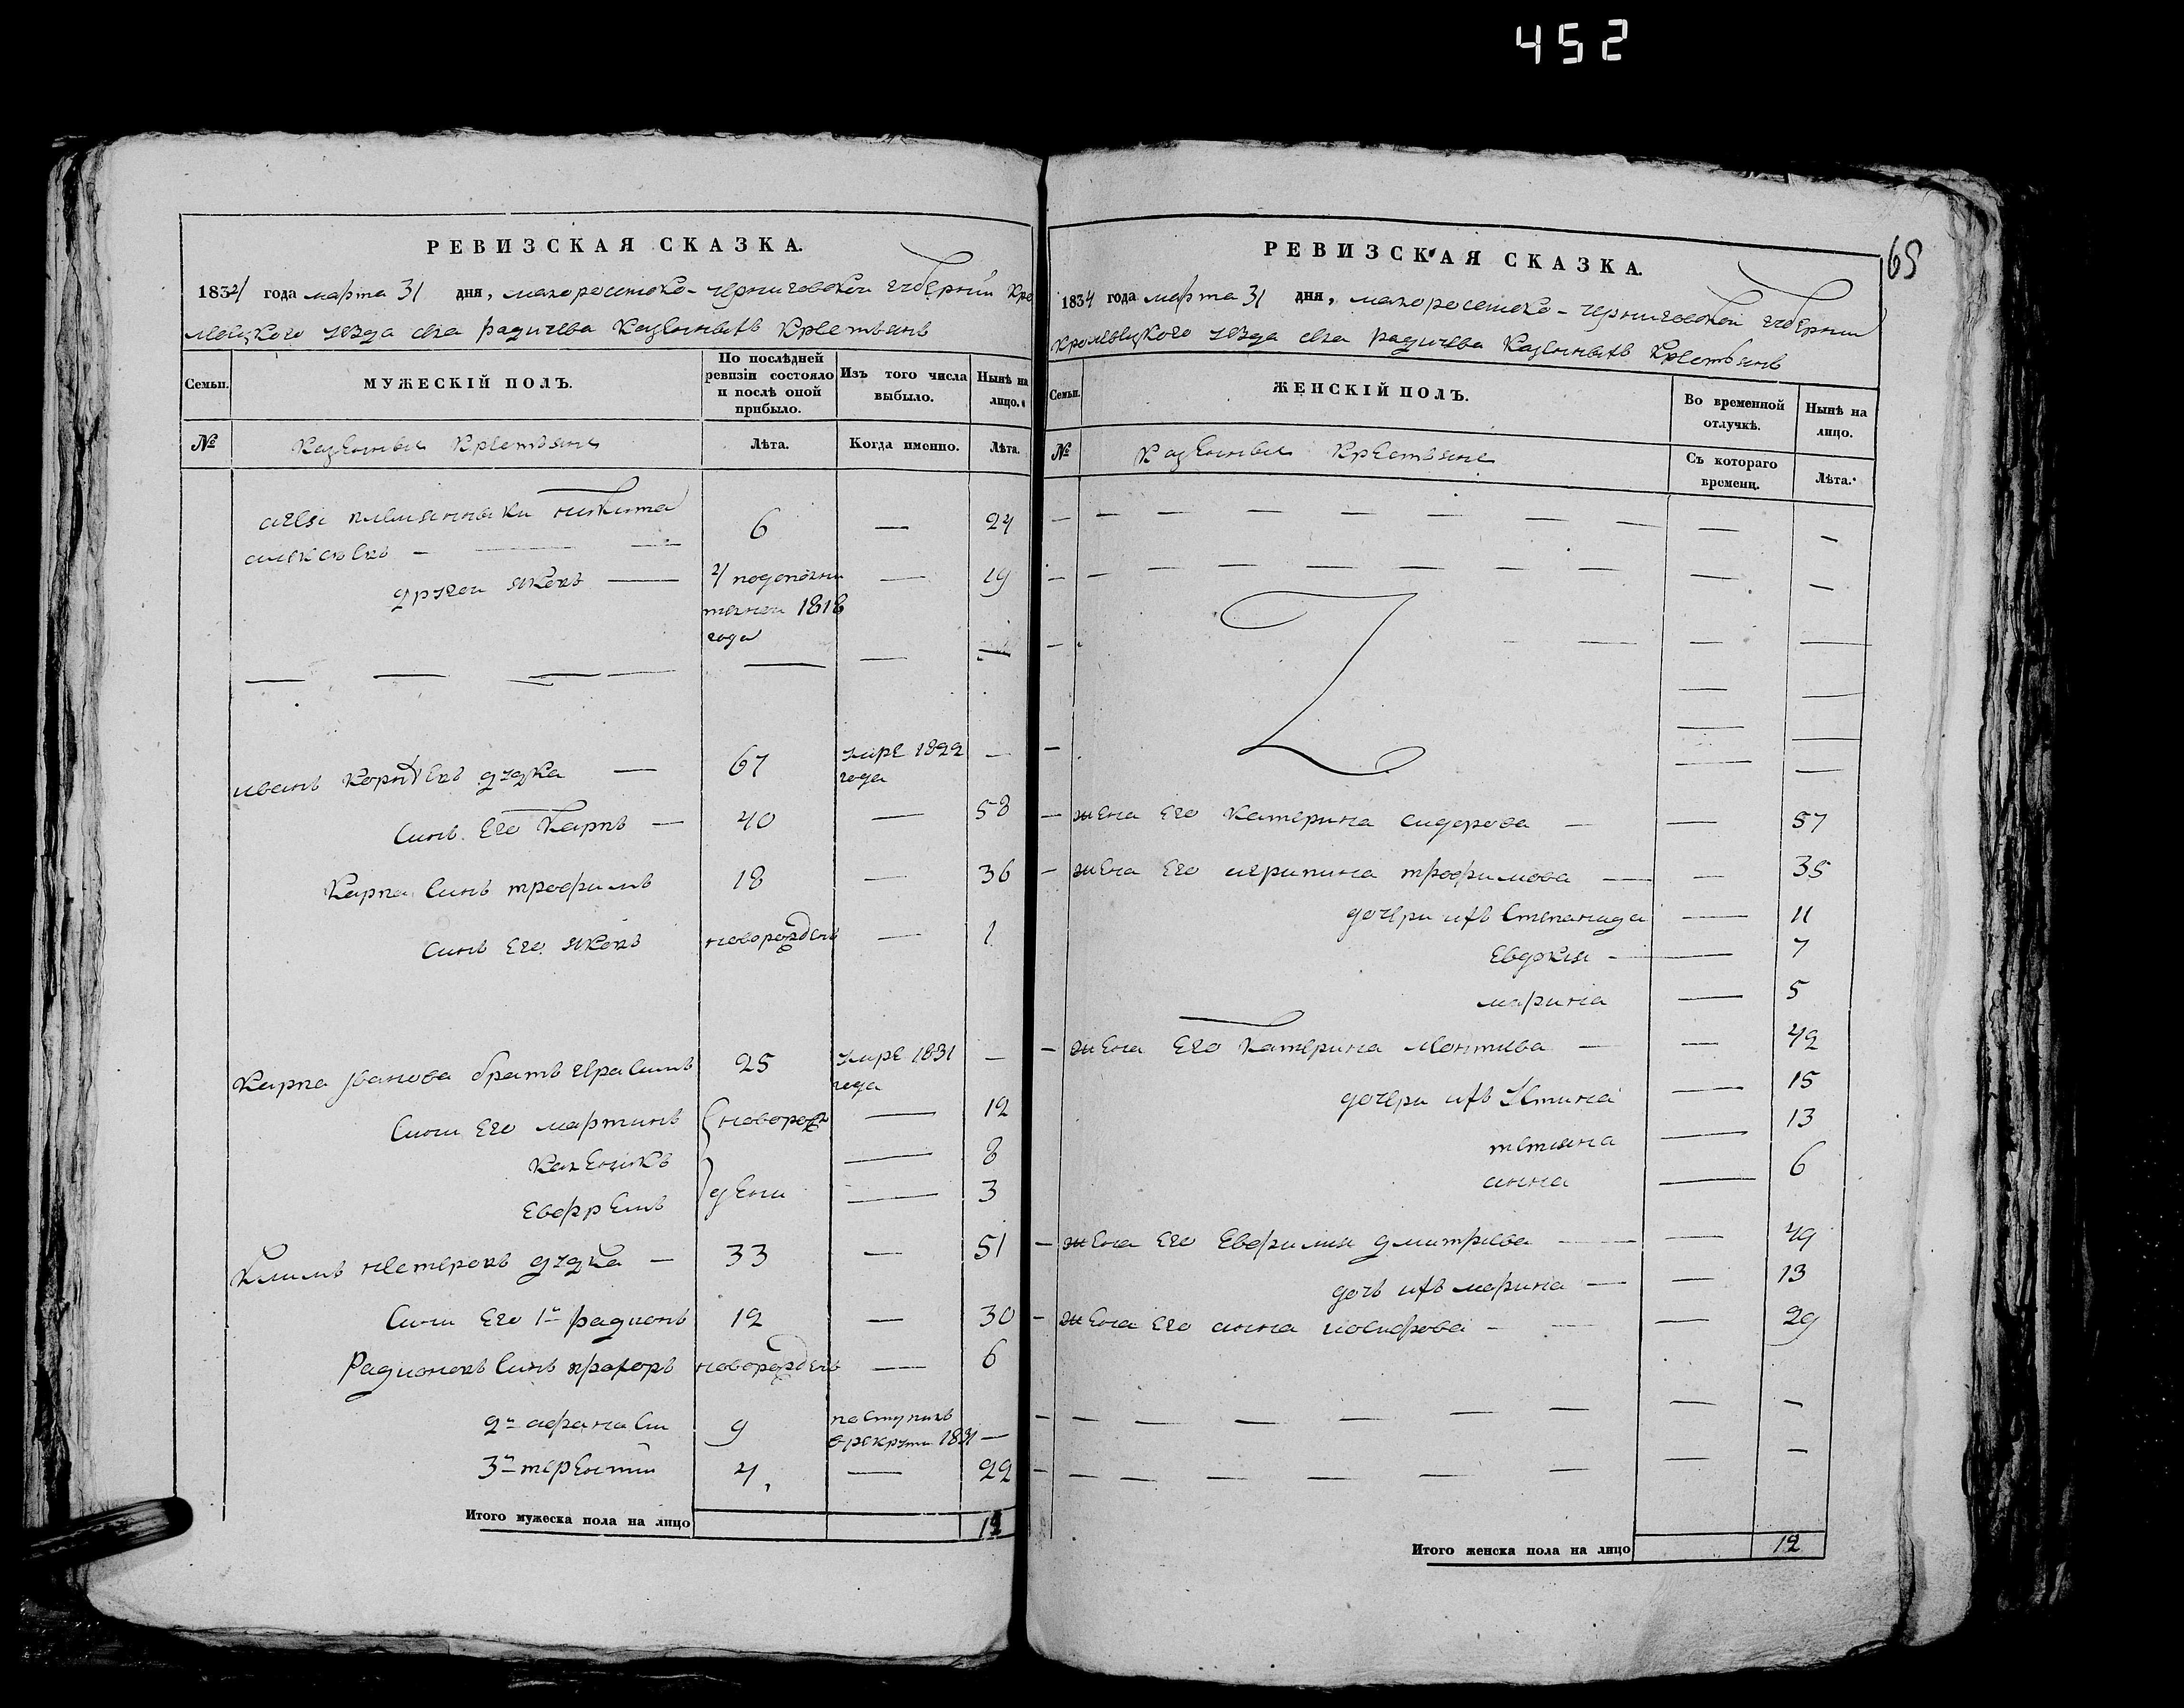 452
РЕВИЗСКАЯ СКАЗКА.
1834 года марта 31 дня, малоросийско-черниговской губерний Кро
левецкого уезда села радичева Казенныхъ Крестьянъ
Семьи.
МУЖЕСКІЙ ПОЛЪ.
По послѣдней ревизіи состояло и послѣ оной прибыло.
Изъ того числа выбыло.
Нынѣ на лицо.
№
Казенные Крестьяне
Лѣта.
Когда именно.
Лѣта.
племянники никита
6 — 24
другой яковъ — 4 по дополни — 19
тельной 1818
года
иванъ дудка — 67 умре 1822 —
года
Синъ его Карпъ — 40 — 58
Карпа Синъ трофимъ 18 — 36
Синъ его яковъ новорожденъ — 1
Карпа іванова братъ герасимъ 25 умре 1831 —
года
Сини его мартинъ новорож — 12
8
дени — 3
Климъ нестеровъ дудка — 33 — 51
Сини его 1й радионъ 12 — 30
Радионовъ Синъ прохоръ новорожденъ — 6
2й афанасий 9 поступилъ
в рекруты 1831 —
3й терентий 4 — 22
Итого мужеска пола на лицо
12
РЕВИЗСКАЯ СКАЗКА.
65
1834 года марта 31 дня, малоросийско-черниговской губернии
Кролевецкого уезда села радичева Казенныхъ Крестьянъ
Семьи.
ЖЕНСКІЙ ПОЛЪ.
Во временной отлучкѣ.
Нынѣ на лицо.
№
Казенные Крестьяне
Съ котораго времени.
Лѣта.
жена его Катерина сидорова — — 57
жена его агрипина трофимова — — 35
дочери ихъ Степанида — 11
Евдокия — 7
марина — 5
жена его Катерина — — 42
дочери ихъ Устина — 15
тетяна — 13
анна — 6
жена его Евфимия дмитриева — — 49
дочь ихъ марина — — 13
жена его анна иосифова — — 29
Итого женска пола на лицо
12